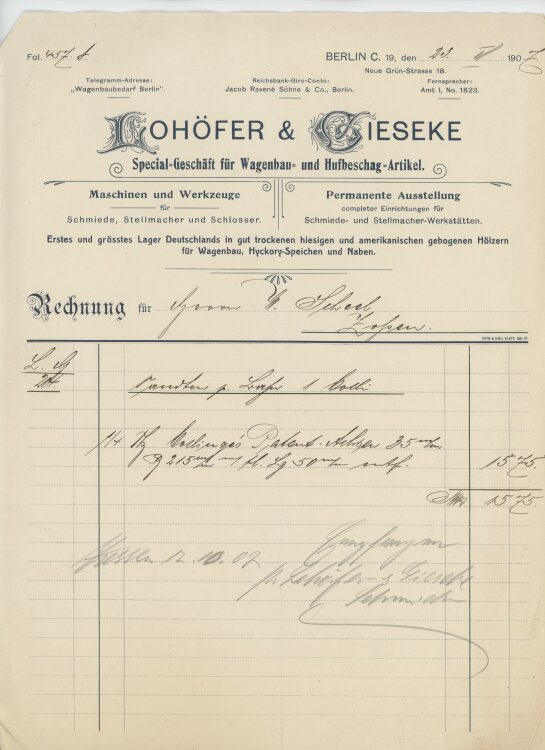 Fol. 457
BERLIN C. 19, den 23. 1907
Neue Grün-Strasse 18.
Telegramm-Adresse:
„Wagenbaubedarf Berlin".
Reichsbank-Giro-Conto:
Jacob Ravené Söhne & Co., Berlin.
Fernsprecher:
Amt I, No. 1823.
LOHÖFER & GIESEKE
Special-Geschäft für Wagenbau- und Hufbeschag-Artikel.
Maschinen und Werkzeuge
für
Schmiede, Stellmacher und Schlosser.
Permanente Ausstellung
completer Einrichtungen für
Schmiede- und Stellmacher-Werkstätten.
Erstes und grösstes Lager Deutschlands in gut trockenen hiesigen und amerikanischen gebogenen Hölzern
für Wagenbau, Hyckory-Speichen und Naben.
Rechnung für Herrn W. Scheel
Zossen.
sandten p. Bahn 1 Colli
114 Kg Collinge's Patent-Achsen 35 m/m
215 m/m 50 m/m 1575
Mk 1575
Zossen 12.10.07
Empfangen
p. Lohöfer & Gieseke